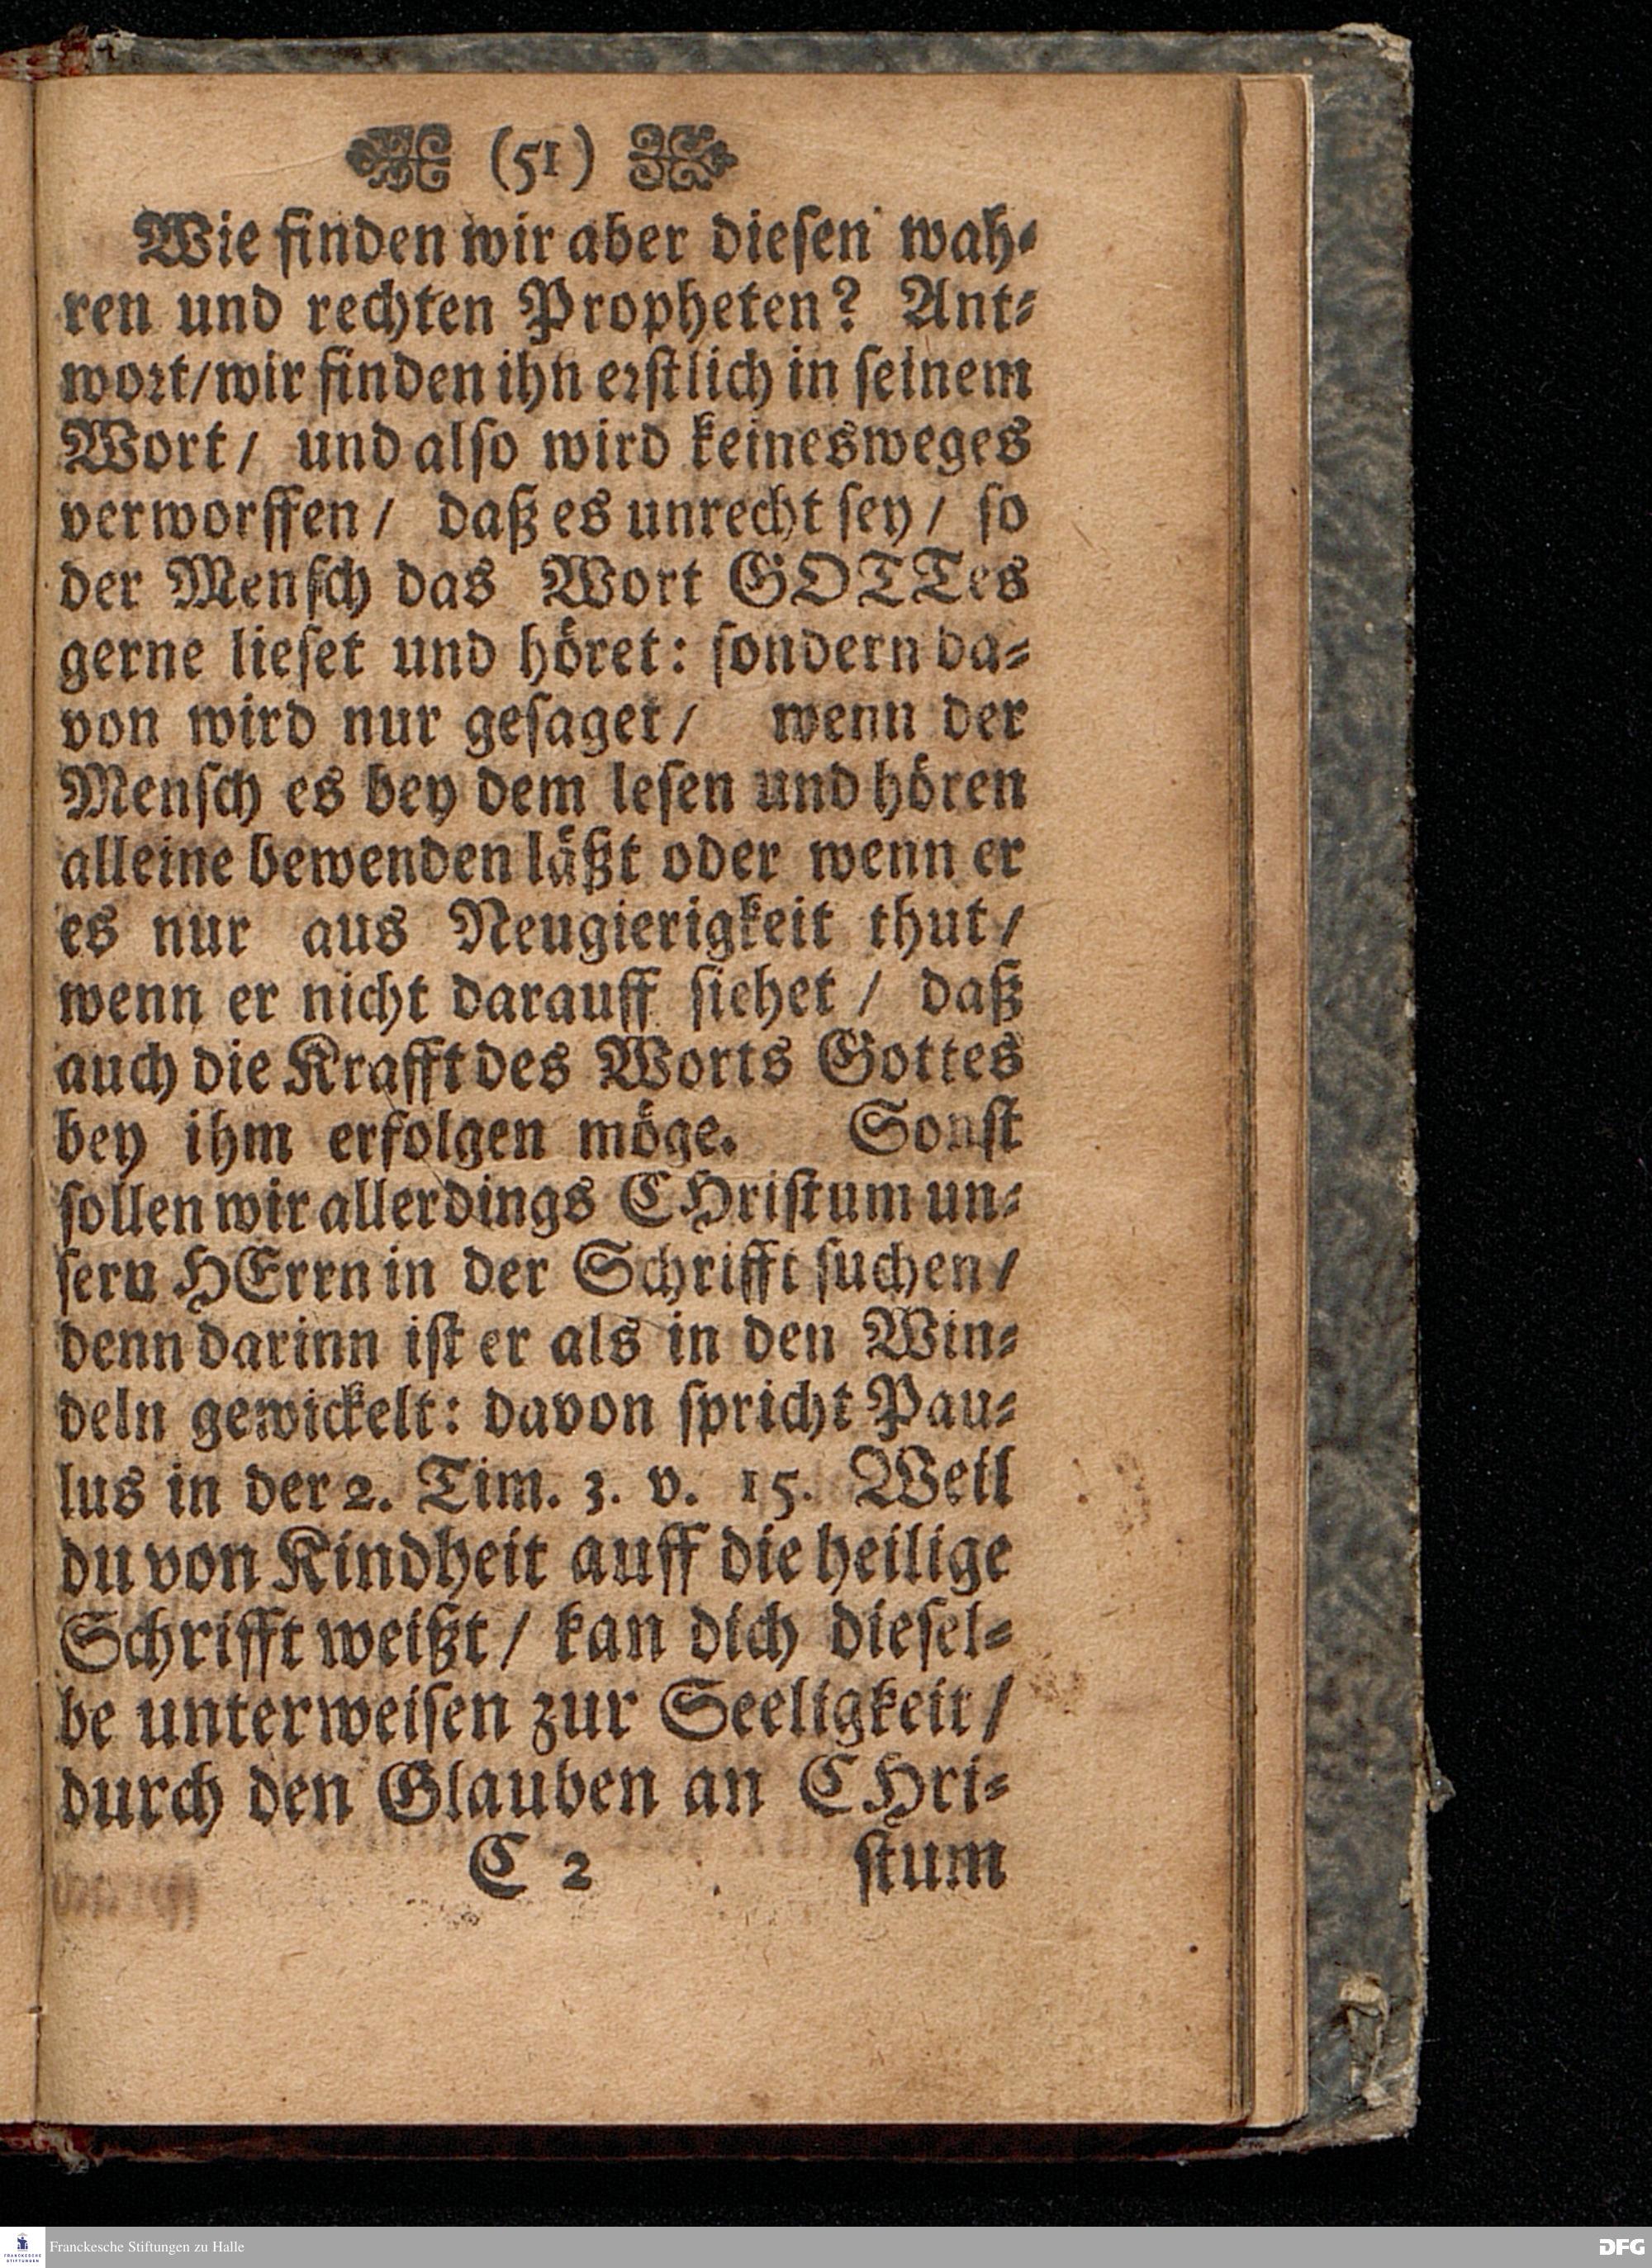 (51)
Wie finden wir aber dieſen wah⸗
ren und rechten Propheten? Ant⸗
wort/wir finden ihn erſtlich in ſeinem
Wort/ und alſo wird keinesweges
verworffen/ daß es unrecht ſey/ ſo
der Menſch das Wort GOTTes
gerne lieſet und höret: ſondern da⸗
von wird nur geſaget/ wenn der
Menſch es bey dem leſen und hören
alleine bewenden läßt oder wenn er
es nur aus Neugierigkeit thut/
wenn er nicht darauff ſiehet / daß
auch die Krafft des Worts Gottes
bey ihm erfolgen möge. Sonſt
ſollen wir allerdings CHriſtum un⸗
ſern HErrn in der Schrifft ſuchen/
denn darinn iſt er als in den Win⸗
deln gewickelt: davon ſpricht Pau⸗
lus in der 2. Tim. 3. v. 15. Weil
du von Kindheit auff die heilige
Schrifft weißt/ kan dich dieſel⸗
be unterweiſen zur Seeligkeit/
durch den Glauben an CHri⸗
C 2 ſtum
FRANCKESCHE STIFTUNGEN Franckesche Stiftungen zu Halle DFG